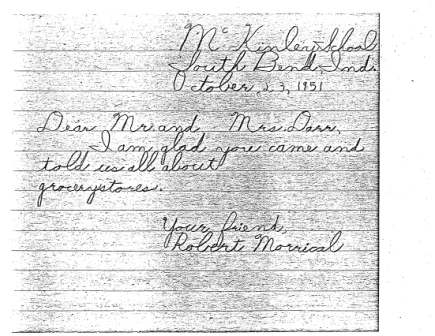 McKinley School
South Bend, Ind.
October, 23, 1951
Dear Mr. and Mrs. Darr,
I am glad you came and
told us all about
grocerystores.
Your friend,
Robert Morrical